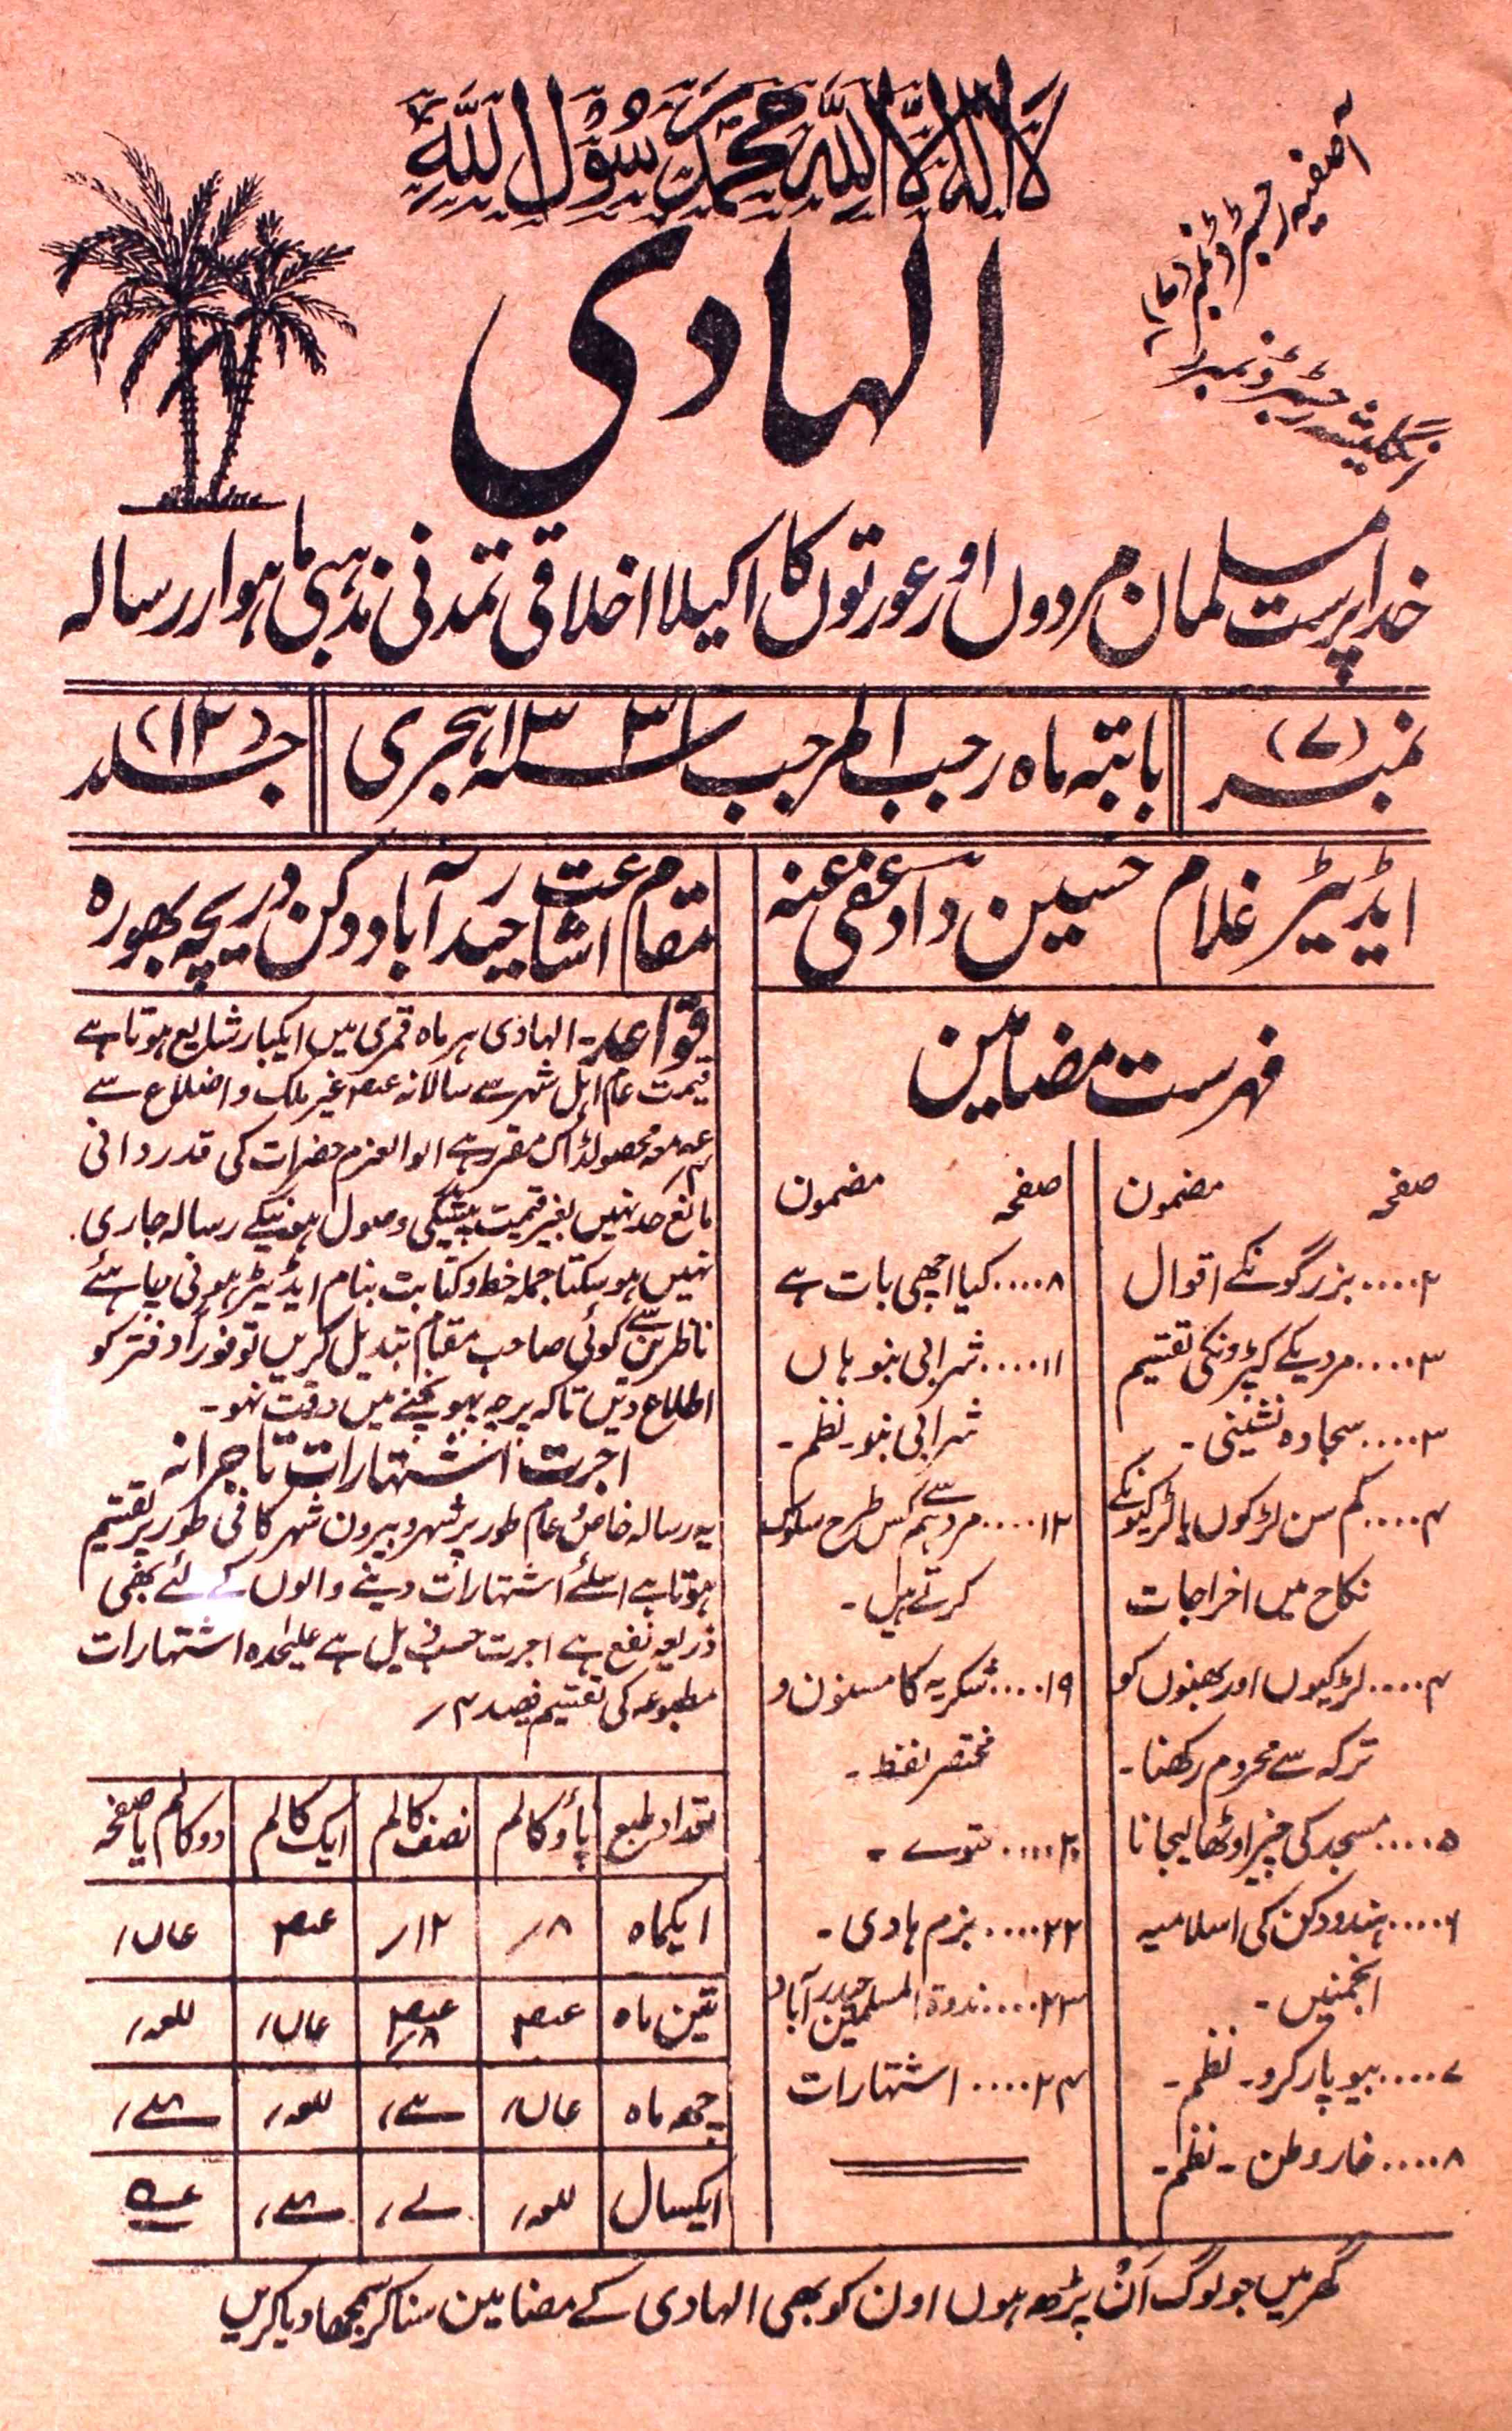 لَا اِلٰهَ اِلَّا اللّٰهُ مُحَمَّدٌ رَّسُوْلُ اللّٰهِ
آصفیہ رجسٹرڈ نمبر
انگلیشہ رجسٹرڈ نمبر
الہادی
خدا پرست مسلمان مردوں اور عورتوں کا اکیلا اخلاقی تمدنی مذہبی ماہوار رسالہ
نمبر (۷)
بابتہ ماہ رجب المرجب سنہ ۱۳۳ ہجری
جلد (۱۲)
ایڈیٹر غلام حسین داؤد عفی عنہ
مقام اشاعت حیدرآباد دکن دریچہ بھورہ
فہرست مضامین
صفحہ مضمون
۲.....بزرگونکے اقوال
۳.....مردیکے کپڑونکی تقسیم
۳.....سجادہ نشینی۔
۴.....کم سن لڑکوں یا لڑکیونکے
نکاح میں اخراجات
۴.....لڑکیوں اور بھنوں کو
ترکہ سے محروم رکھنا۔
۵.....مسجد کی چیز اوٹھا لیجانا
۶.....ہند و دکن کی اسلامیہ
انجمنیں۔
۷.....بیوپار کرو۔ نظم۔
۸.....خار وطن۔ نظم۔
صفحہ مضمون
۸.....کیا اچھی بات ہے
۱۱.....شرابی بنو ہاں
شرابی بنو۔ نظم۔
۱۲.....مرد ہم سے کس طرح سلوک
کرتے ہیں۔
۱۹.....شکریہ کا مسنون و
مختصر لفظ۔
۲۰.....فتوے۔
۲۲.....بزم ہادی۔
۲۳.....ندوۃ المسلمین حیدرآباد
۲۴.....اشتہارات
قواعد۔ الہادی ہر ماہ قمری میں ایکبار شایع ہوتا ہے
قیمت عام اہل شہر سے سالانہ غیر ملک و اضلاع سے
معہ محصولڈاک مقرر ہے الوالعزم حضرات کی قدردانی
مانع حد نہیں بغیر قیمت پیشگی وصول ہونیکے رسالہ جاری
نہیں ہوسکتا جملہ خط و کتابت بنام ایڈیٹر ہونی چاہئے
ناظرین سے کوئی صاحب مقام تبدیل کریں تو فوراً دفتر کو
اطلاع دیں تاکہ پرچہ پہونچنے میں دقت نہو۔
اجرت اشتہارات تاجرانہ
یہ رسالہ خاص و عام طور پر شہر و بیرون شہر کافی طور پر تقسیم
ہوتا ہے اسلئے اشتہارات دینے والوں کے لئے بھی
ذریعہ نفع ہے اجرت حسب ذیل ہے علیحدہ اشتہارات
مطبوعہ کی تقسیم فیصد ۴؍
تعداد طبع پاؤ کالم نصف کالم ایک کالم دو کالم یا صفحہ
ایکماہ ۸؍ ۱۲؍
تین ماہ
چھ ماہ
ایکسال
گھر میں جو لوگ اَن پڑھ ہوں اون کو بھی الہادی کے مضامین سنا کر سمجھا دیا کریں